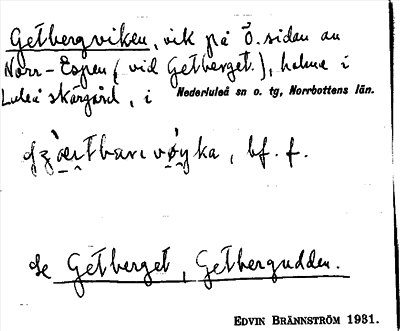 Getbergviken, vik på Ö. sidan av
Norr-Espen (vid Getberget), holme i
Luleå skärgård, i Nederluleå sn o. tg, Norrbottens län.
bf. f.
Se Getberget, Getbergudden.
EDVIN BRÄNNSTRÖM 1931.